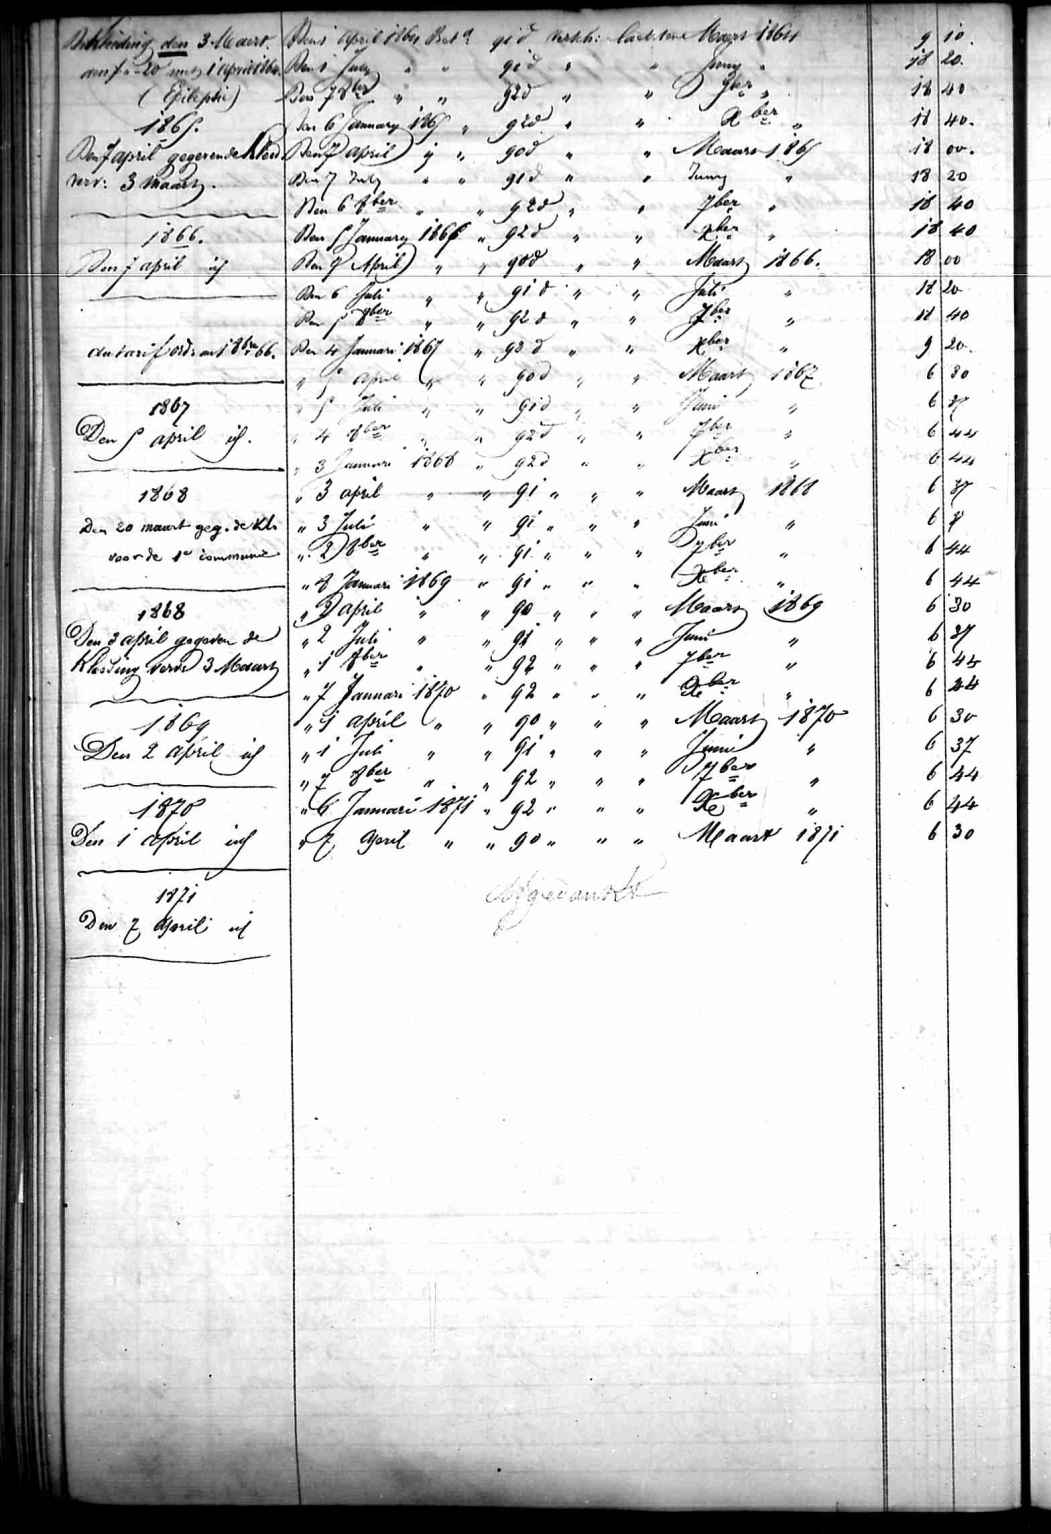 Bekleeding den 3 Maert.
(Epilepsie)
1865.
Den 7 april gegeven de kleed
verv: 3 maart.
1866.
Den 7 april id
1867
Den 5 april id.
1868
Den 20 maart geg. de kl.
voor de 1e communie
1868
Den 3 april gegeven de
kleeding verv 3 Maart
1869
Den 2 april id
1870
Den 1 april id
1871
Den 7 april id
Den 1 April 1864 Bet d 91 d verkh: laetsten Maart 1864 9 10.
Den 1 July " " 91 d " " Juny " 18 20.
Den 7 8ber " " 92 d " " 7ber " 18 40
Den 6 January 1865 " 92 d " " Xber " 18 40.
Den 7 april " " 90 d " " Maart 1865 18 00.
Den 7 July " " 91 d " " Juny " 18 20
Den 6 8ber " " 92 d " " 7ber " 18 40
Den 5 January 1866 " 92 d " " Xber " 18 40
Den 9 April " " 90 d " " Maart 1866. 18 00
Den 6 Juli " " 91 d " " Juli " 18 20
Den 5 8ber " " 92 d " " 7ber " 18 40
Den 4 Januari 1867 " 92 d " " Xber " 9 20.
" 5 april " " 90 d " " Maart 1867 6 30
" 5 Juli " " 91 d " " Juni " 6 37
" 4 8ber " " 92 d " " 7ber " 6 44
" 3 Januari 1868 " 92 d " " Xber " 6 44
" 3 april " " 91 " " " Maart 1868 6 37
" 3 Juli " " 91 " " " Juni " 6
" 2 8ber " " 91 " " " 7ber " 6 44
" 8 Januari 1869 " 91 " " " Xber " 6 44
" 2 april " " 90 " " " Maart 1869 6 30
" 2 Juli " " 91 " " " Juni " 6 37
" 1 8ber " " 92 " " " 7ber " 6 44
" 7 Januari 1870 " 92 " " " Xber " 6 44
" 1 april " " 90 " " " Maart 1870 6 30
" 1 Juli " " 91 " " " Juni " 6 37
" 7 8ber " " 92 " " " 7ber " 6 44
" 6 Januari 1871 " 92 " " " Xber " 6 44
" 7 april " " 90 " " " Maart 1871 6 30